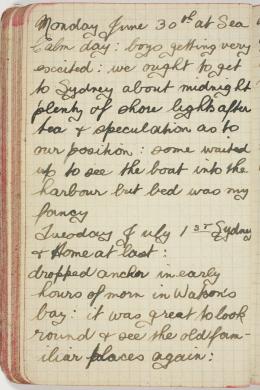 Monday June 30th at Sea
Calm day: boys getting very
excited: we ought to get
to Sydney about midnight
plenty of shore lights after
tea & speculation as to
our position: some waited
up to see the boat into the
harbour but bed was my
fancy
Tuesday July 1st Sydney
& Home at last:
dropped anchor in early
hours of morn in Watson's
bay: it was great to look
round & see the old fam-
iliar places again: